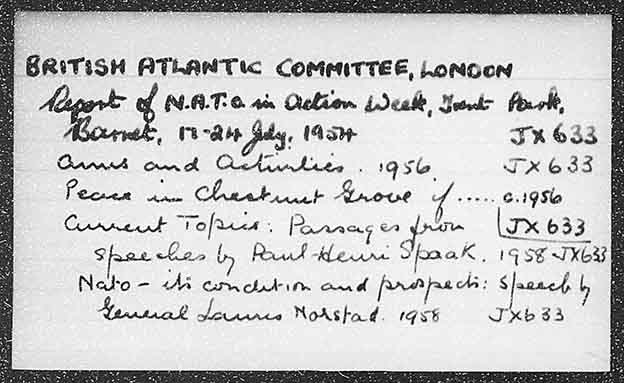 BRITISH ATLANTIC COMMITTEE, LONDON
Report of N.A.T.O in Action Week, Trent Park,
Barnet, 17-24 July, 1954 JX633
Aims and Activities. 1956. JX633
Peace in Chestnut Grove if ..... c.1956
Current Topics: Passages from JX633
speeches by Paul-Henri Spaak. 1958 JX633
Nato - its condition and prospects: Speech by
General Lauris Norstad. 1958 JX633